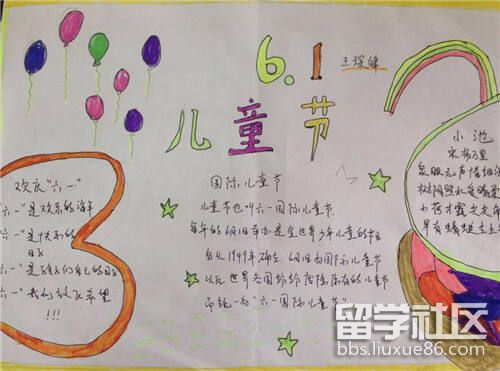 6.1
王琛锋
儿童节
欢庆"六一"
"六一"是欢乐的海洋
"六一"是快乐的
节日
"六一"是我们自己的节日
"六一"我们放飞希望
!!!
国际儿童节
儿童节也叫六一国际儿童节
每年的6月1日举办是全世界少年儿童的节日
自从1949年确立6月1日为国际儿童节
以后世界各国纷纷废除原有的儿童节
而统一为"六一国际儿童节"
小池
宋杨万里
泉眼无声惜细流
树阴照水爱晴柔
小荷才露尖尖角
早有蜻蜓立上
留学社区
bbs.liuxue86.com